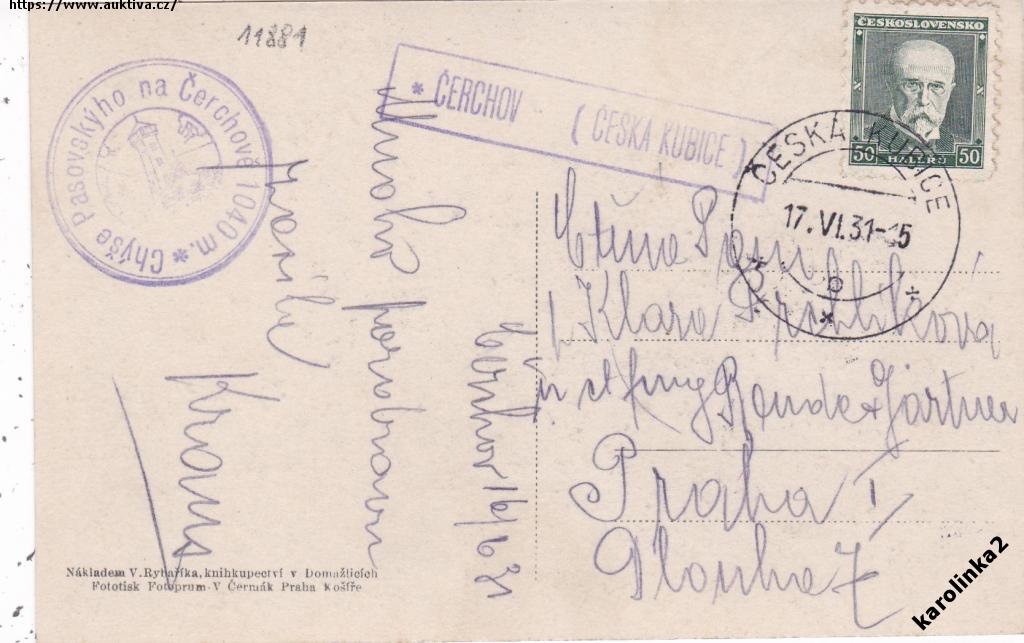 https://www.auktiva.cz/
11881
Chýše Pasovského na Čerchově 1040 m. *
* ČERCHOV (ČESKÁ KUBICE)
ČESKOSLOVENSKO
50 HALÉŘŮ 50
ČESKÁ KUBICE
17.VI.31-15
b
Mnoho pozdravů
Kraus
Čerchov 16/6 31
Ctěná
Klara
Praha I
Dlouhá 7
Nákladem V. Rybaříka, knihkupectví v Domažlicích
Fototisk Fotoprum-V Čermák Praha Košíře
karolinka2